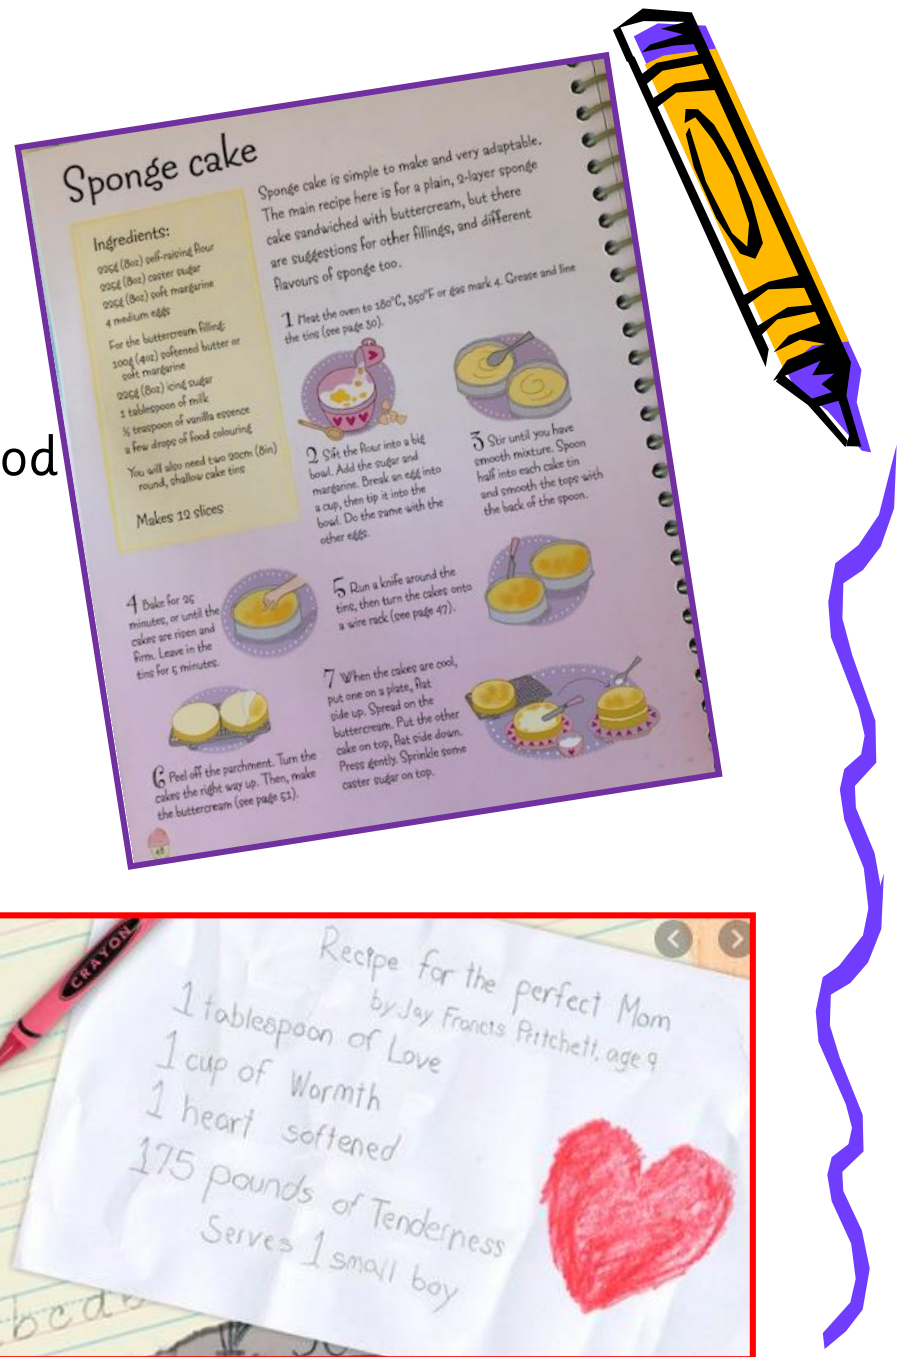 Sponge cake
Ingredients:
225g (8oz) self-raising flour
225g (8oz) caster sugar
225g (8oz) soft margarine
4 medium eggs
For the buttercream filling:
100g (4oz) softened butter or
soft margarine
225g (8oz) icing sugar
1 tablespoon of milk
½ teaspoon of vanilla essence
a few drops of food colouring
You will also need two 20cm (8in)
round, shallow cake tins
Makes 12 slices
Sponge cake is simple to make and very adaptable.
The main recipe here is for a plain, 2-layer sponge
cake sandwiched with buttercream, but there
are suggestions for other fillings, and different
flavours of sponge too.
1 Heat the oven to 180°C, 350°F or gas mark 4. Grease and line
the tins (see page 30).
2 Sift the flour into a big
bowl. Add the sugar and
margarine. Break an egg into
a cup, then tip it into the
bowl. Do the same with the
other eggs.
3 Stir until you have
smooth mixture. Spoon
half into each cake tin
and smooth the tops with
the back of the spoon.
4 Bake for 25
minutes, or until the
cakes are risen and
firm. Leave in the
tins for 5 minutes.
5 Run a knife around the
tins, then turn the cakes onto
a wire rack (see page 47).
6 Peel off the parchment. Turn the
cakes the right way up. Then, make
the buttercream (see page 51).
7 When the cakes are cool,
put one on a plate, flat
side up. Spread on the
buttercream. Put the other
cake on top, flat side down.
Press gently. Sprinkle some
caster sugar on top.
48
od
CRAYON
Recipe for the perfect Mom
by Jay Francis Pritchett, age 9
1 tablespoon of Love
1 cup of Warmth
1 heart softened
175 pounds of Tenderness
Serves 1 small boy
bcde